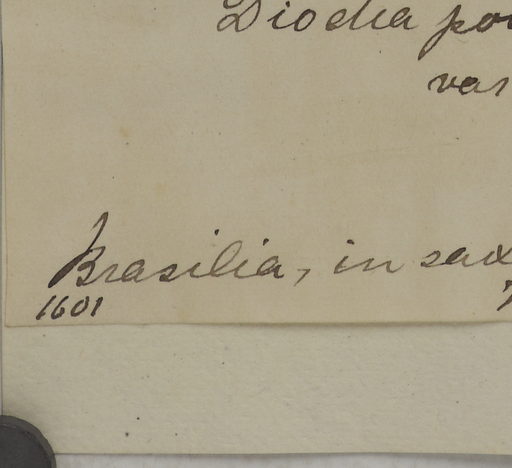 Diodia
var
Brasilia, in sax
1601